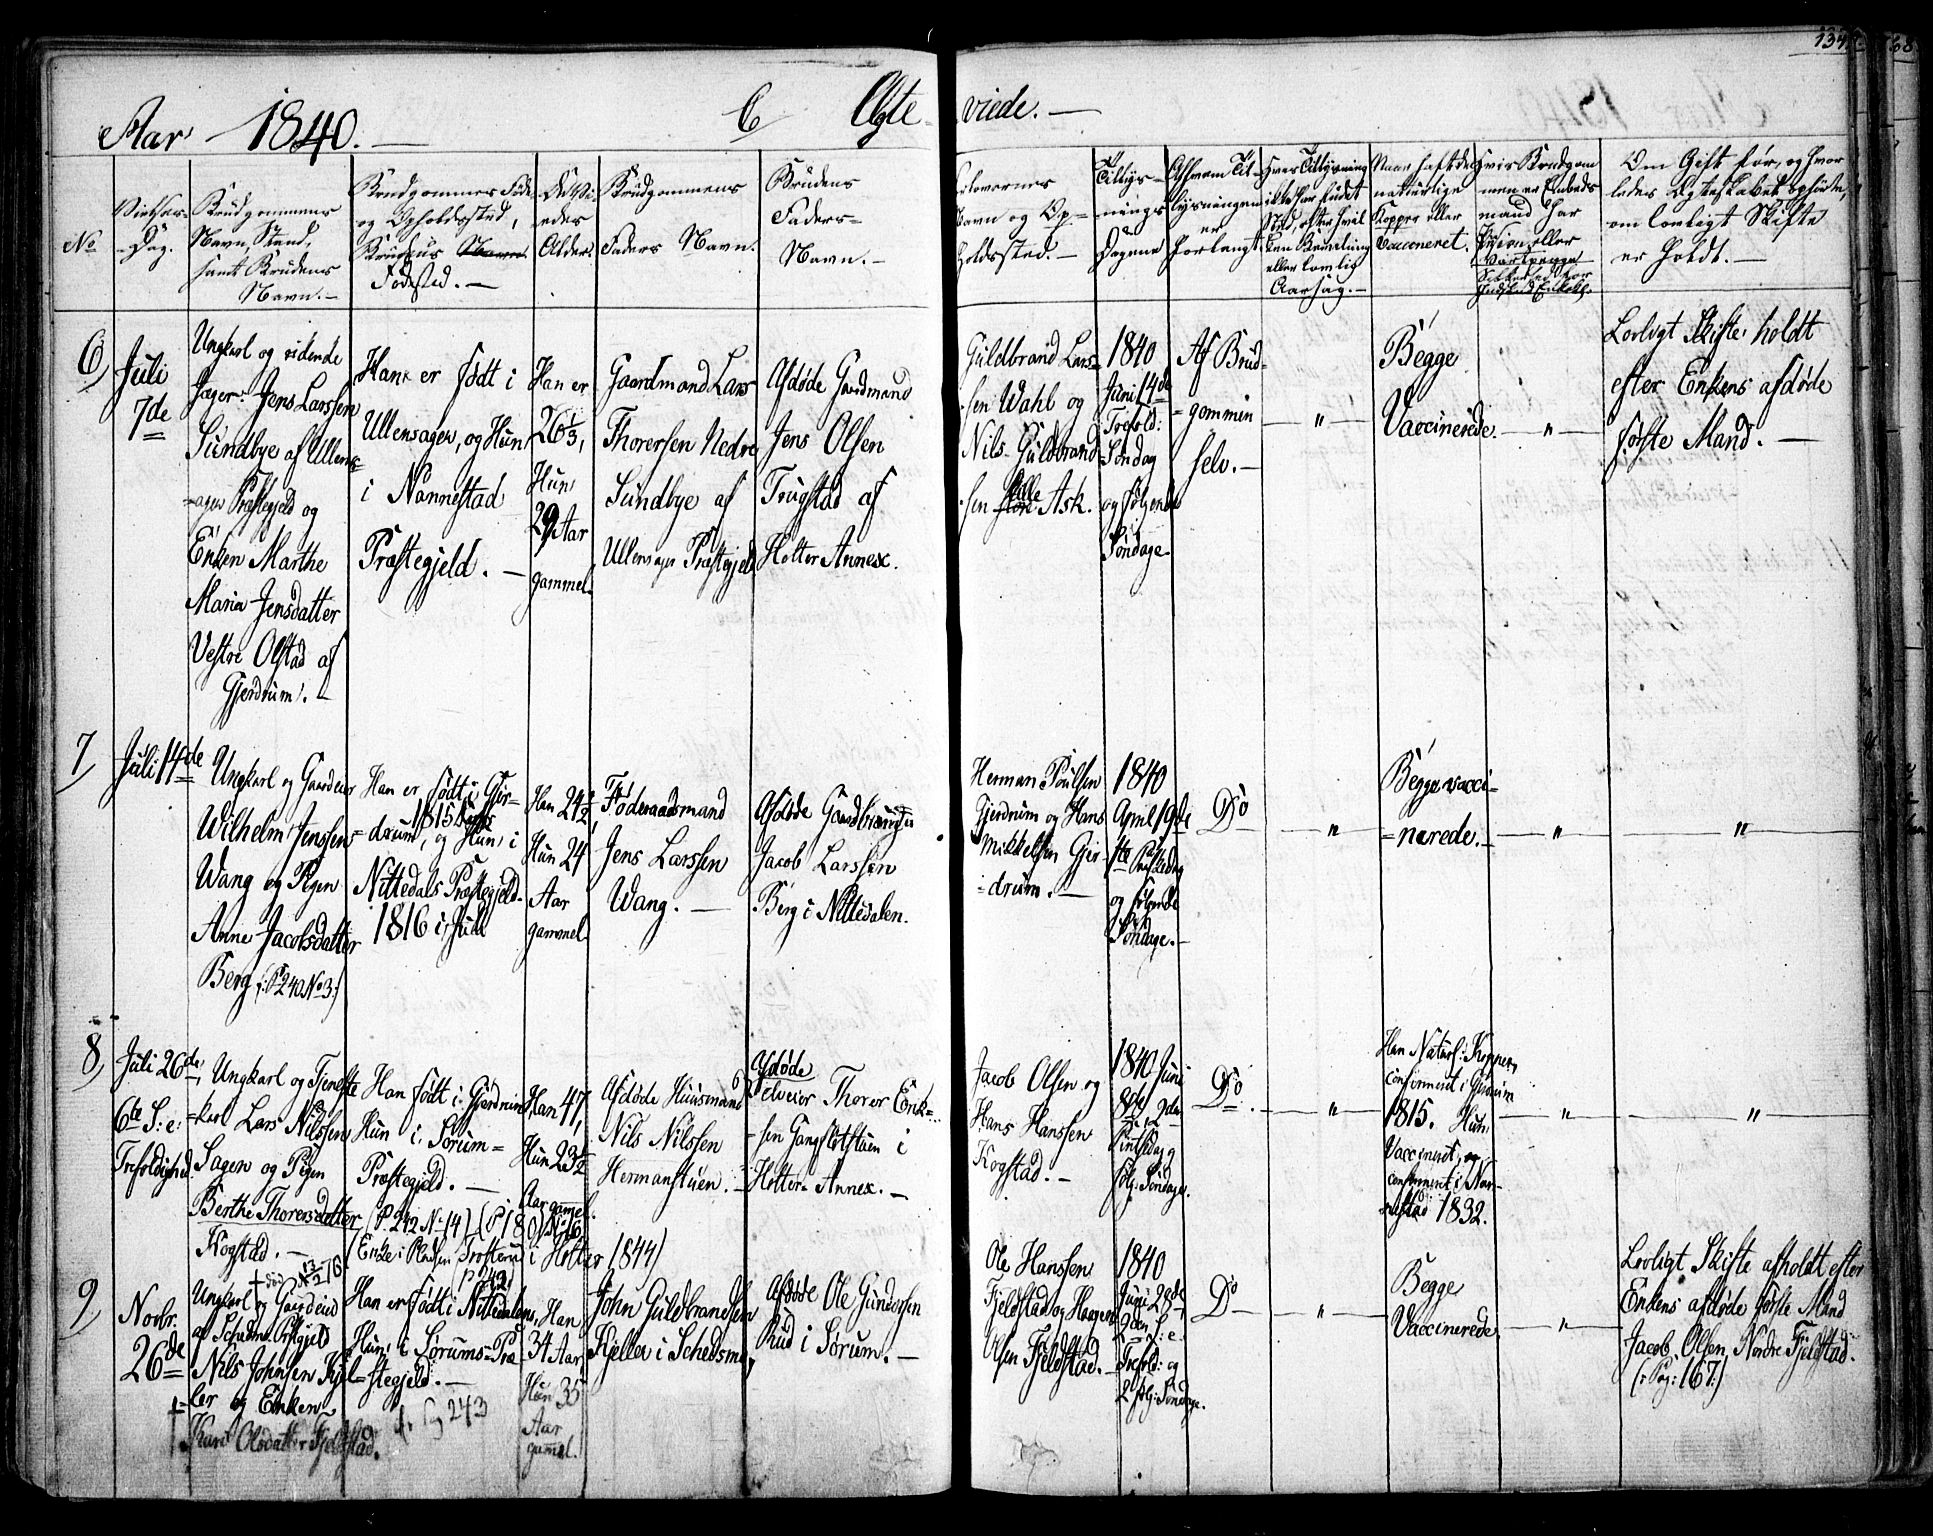 134
Aar 1840. —
C Ægte-viede. —
No
Vielses-
-Dag.
Brudgommens
Navn, Stand,
samt Brudens
Navn. —
Brudgommens Føde
og Opholdssted,
Brudens Navn
Fødested. —
De Vi-
edes
Alder.
Brudgommens
Faders Navn.
Brudens
Faders-
Navn. —
Forlovernes
Navn og Op-
holdssted. —
Tillys-
nings
Dagene
Af hvem Til-
lysningen
er
forlangt
Hvis Tillysning
ikke har fundet
Sted, efter hvil
ken Bevilling
eller lovlig
Aarsag. —
Naar havt de
naturlige
Kopper eller
Vaccineret.
Hvis Brudgom
men er Embeds
mand har
Om Gift før, og hvor
ledes Ægteskabet ophørte,
om lovligt Skifte
er holdt. —
6)
Juli
7de
Ungkarl og ridende
Jæger: Jens Larssen
Sundbye af Ullens-
-ager Præstegjeld og
Enken Marthe
Maria Jensdatter
Vestre Olstad af
Gjerdrum. —
Han er født i
Ullensager, og Hun
i Nannestad
Præstegjeld. —
Han er
26⅓,
Hun
29 Aar
gammel.
Gaardmand Lars
Thorersen Nedre
Sundbye af
Ullensager Præstegjeld
Afdøde Gaardmand
Jens Olsen
Trugstad af
Holter Annex.
Guldbrand Lars-
-sen Wahl og
Nils Guldbrand-
-sen store lille Ask.
1840
Juni 14de
Trefold:
Søndag
og følgende
Søndage
Af Brud-
-gommen
selv. —
— " —
Begge
Vaccinerede.
— " —
Lovligt Skifte holdt
efter Enkens afdøde
første Mand. —
7)
Juli 14de
Ungkarl og Gaardeier
Wilhelm Jenssen
Wang og Pigen
Anne Jacobsdatter
Berg (: P 240 No 3:)
Han er født i Gjer-
1815
drum, og Hun i
Nittedals Præstegjeld.
1816 i Juli
Han 24½,
Hun 24
Aar
gammel.
Føderaadsmand
Jens Larssen
Wang. —
Afdøde Gaardbruger
Jacob Larssen
Berg i Nittedalen.
Herman Poulsen
Gjerdrum og Hans
Mikkelsen Gjer-
-drum. —
1840
April 19de
1ste Paaskedag
og følgende
Søndage. —
Do
— " —
Begge vacci-
-nerede. —
— " —
— " —
8)
Juli 26de,
6te S: e:
Trefoldighed.
Ungkarl og Tjeneste
-karl Lars Nilssen
Sagen og Pigen
Berthe Thorersdatter
Kogstad. —
Han født i Gjerdrum
Hun i Sørum-
Præstegjeld. —
(P. 242 No 14) (P 180 No 16)
(Enke i Pladsen Trosterud i Holter 1844)
Han 47,
Hun 23½
Aar gamel.
Afdøde Huusmand
Nils Nilssen
Hermanstuen. —
Afdøde
Selveier Thorer Erik-
-sen Gangsløtstuen i
Holter Annex. —
Jacob Olsen og
Hans Hanssen
Kogstad. —
1840 Juni
8de, 2den
Pintsedag
følg: Søndage.
Do.
— " —
Han Naturl: Kopper,
confirmeret i Gjerdrum
1815. Hun
Vaccineret, og
confirmeret i Nan-
nestad 1832.
— " —
— " —
9)
Novbr.
26de
† død 13/2 76
Ungkarl og Gaardeier
af Schedsmo Prstgjeld
Nils Johnsen Kjel-
ler og Enken
Kari Olsdatter Fjeldstad.
Han er født i Nittedalens,
Hun i Sørums-Præ-
-stegjeld. —
243
Han
34 Aar
Hun 35
Aar
gamel.
John Guldbrandsen
Kjeller i Schedsmo,
Afdøde Ole Gundersen
Rud i Sørum. —
Ole Hanssen
Fjeldstad og Haagen
Olsen Fjeldstad. —
1840
Juni 28de,
2den S: e:
Trefold: og
2 følg: Søndage.
Do
— " —
Begge
Vaccinerede
— " —
Lovligt Skifte afholdt efter
Enkens afdøde første Mand
Jacob Olsen Nordre Fjeldstad.
(: Pag: 167:)